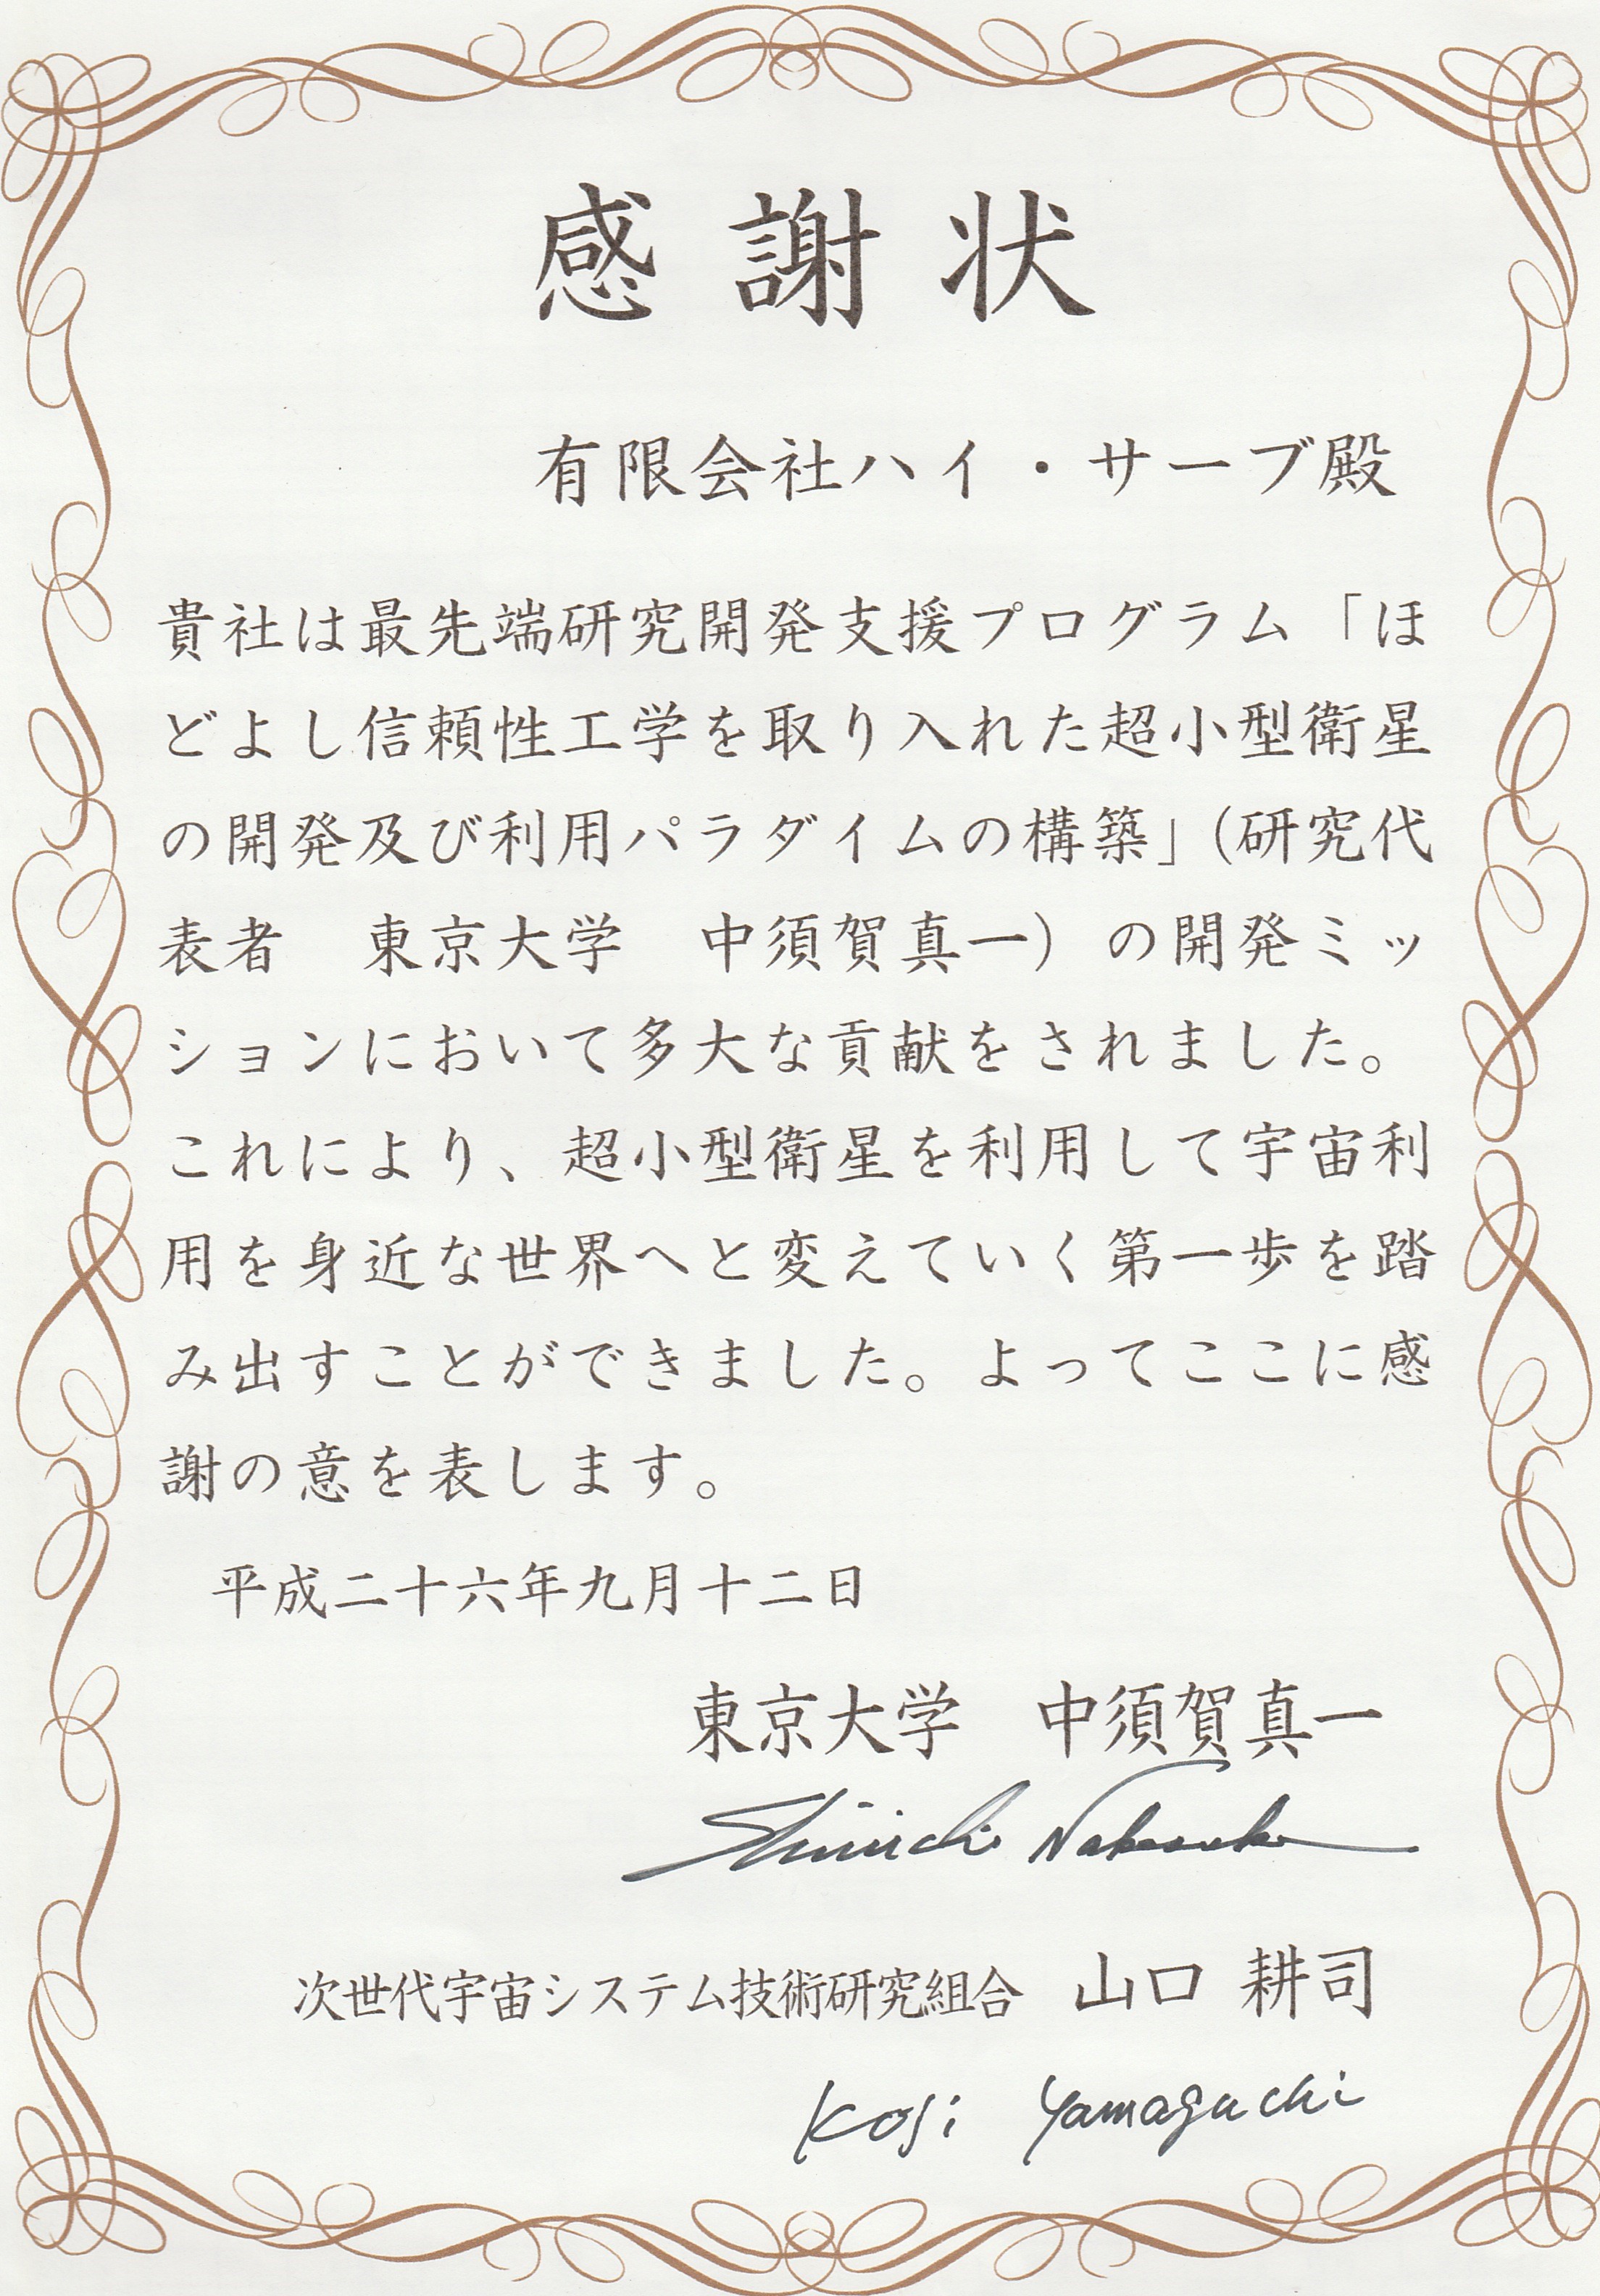 感謝状
有限会社ハイ・サーブ殿
貴社は最先端研究開発支援プログラム「ほ
どよし信頼性工学を取り入れた超小型衛星
の開発及び利用パラダイムの構築」（研究代
表者　東京大学　中須賀真一）の開発ミッ
ションにおいて多大な貢献をされました。
これにより、超小型衛星を利用して宇宙利
用を身近な世界へと変えていく第一歩を踏
み出すことができました。よってここに感
謝の意を表します。
平成二十六年九月十二日
東京大学　中須賀真一
Shinichi Nakasuka
次世代宇宙システム技術研究組合　山口 耕司
Koji Yamaguchi